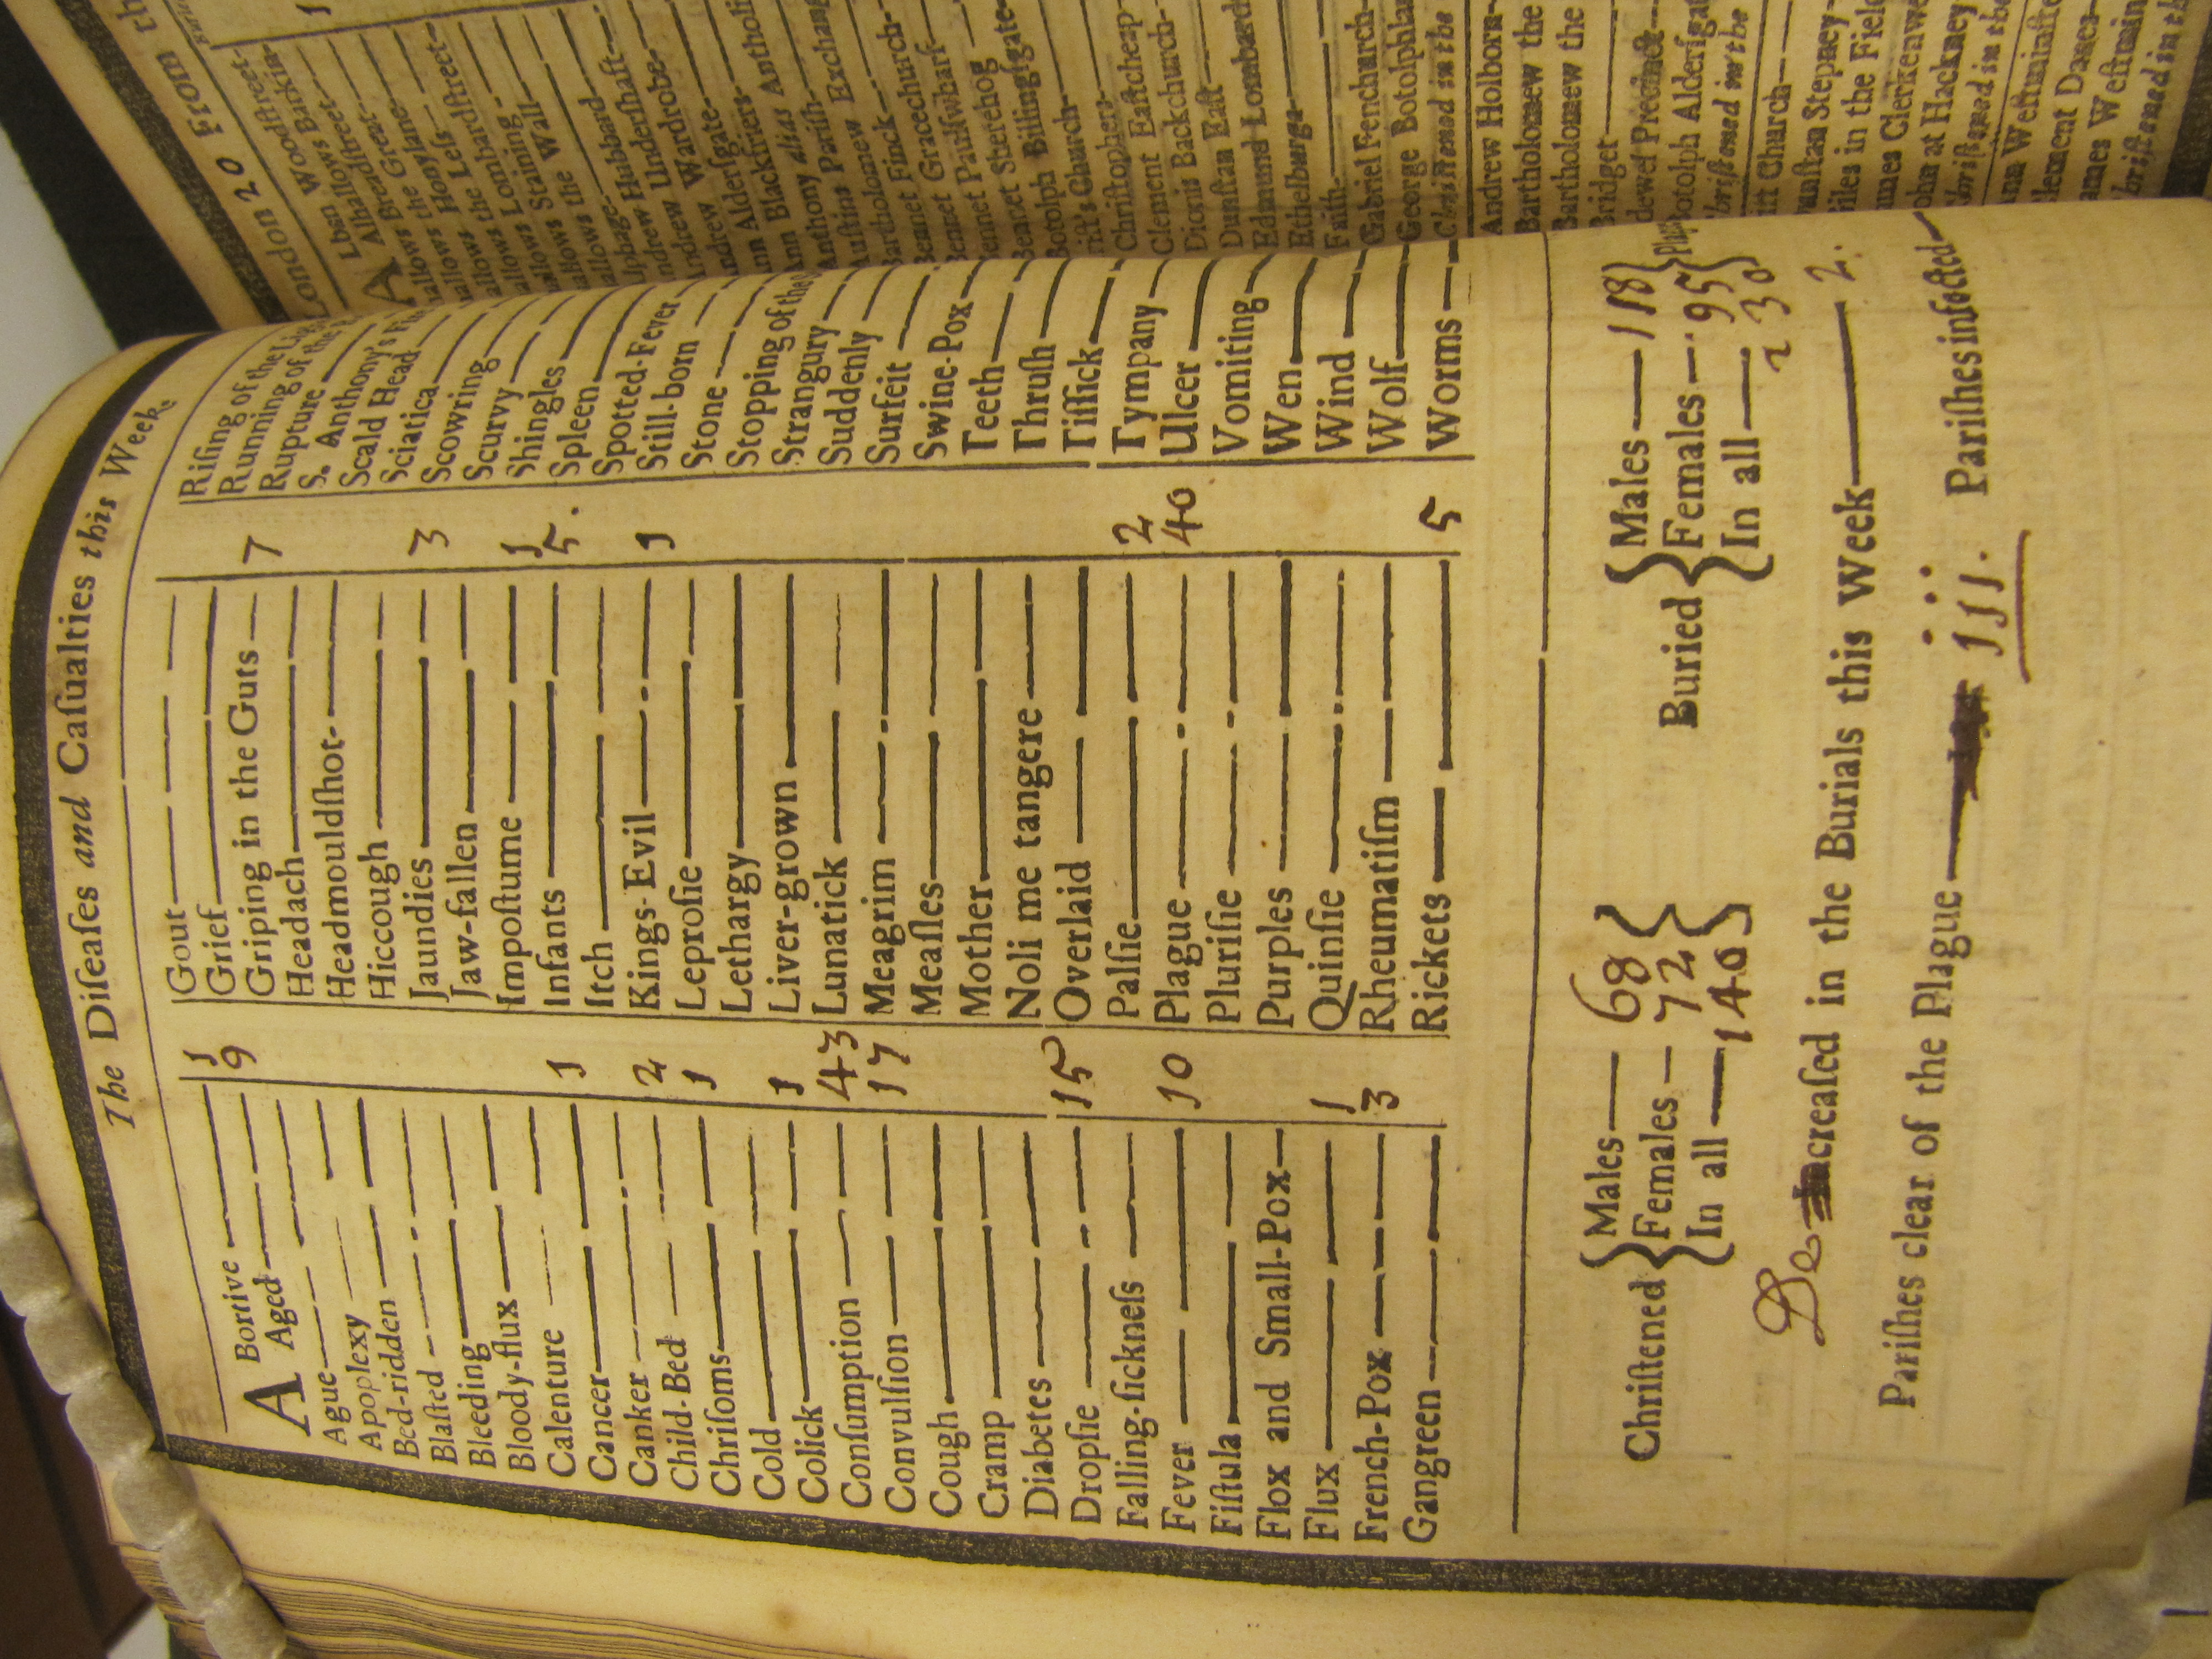 The Diſeaſes and Caſualties this Week.
A Bortive 1
Aged 9
Ague
Apoplexy
Bed-ridden
Blaſted
Bleeding
Bloody-flux
Calenture
Cancer 1
Canker
Child-Bed 2
Chriſoms 1
Cold
Colick 1
Conſumption 43
Convulſion 17
Cough
Cramp
Diabetes
Dropſie 15
Falling-ſickneſs
Fever 10
Fiſtula
Flox and Small-Pox
Flux 1
French-Pox 3
Gangreen
Gout
Grief
Griping in the Guts 7
Headach
Headmouldſhot
Hiccough
Jaundies 3
Jaw-fallen
Impoſtume 1
Infants 5.
Itch
Kings-Evil 1
Leproſie
Lethargy
Liver-grown
Lunatick
Meagrim
Meaſles
Mother
Noli me tangere
Overlaid
Palſie 2
Plague 40
Pluriſie
Purples
Quinſie
Rheumatiſm
Rickets 5
Riſing of the
Running of the
Rupture
S. Anthony's
Scald Head
Sciatica
Scowring
Scurvy
Shingles
Spleen
Spotted-Fever
Still-born
Stone
Stopping of the
Strangury
Suddenly
Surfeit
Swine-Pox
Teeth
Thruſh
Tiſſick
Tympany
Ulcer
Vomiting
Wen
Wind
Wolf
Worms
Chriſtened { Males 68 }
Females 72
In all 140
Buried { Males
Females 95
In all 230
Decreaſed in the Burials this Week 2.
Pariſhes clear of the Plague 111. Pariſhes infected
London 20 From th
Lban Woodſtreet
Alhallows Barkin
Alhallows Breadſtreet
allows the Great
allows Honylane
allows the Leſs
allows Lombardſtreet
allows Staining
allows the Wall
Andrew Hubbard
Andrew Underſhaft
Andrew Wardrobe
Ann Alderſgate
Ann Blackfriers
Anthony alias Antholi
Auſtins Pariſh
Bartholomew Exchang
Bennet Finck
Bennet Gracechurch
Bennet Paulſwharf
Bennet Sherehog
Botolph Billingſgate
Chriſt's Church
Chriſtophers
Clement Eaſtcheap
Dionis Backchurch
Dunſtan Eaſt
Edmund Lombard
Ethelburga
Faith
Gabriel Fenchurch
George Botolphla
Chriſtened in the
Andrew Holborn
Bartholomew the
Bartholomew the
Bridget
dewel Precinct
Botolph Alderſgat
Chriſtened in the
iſt Church
unſtan Stepney
iles in the Fiel
ames Clerkenwe
ohn at Hackney
Chriſtened in the
nn Weſtminſte
lement Danes
ames Weſtmin
hriſtened in th